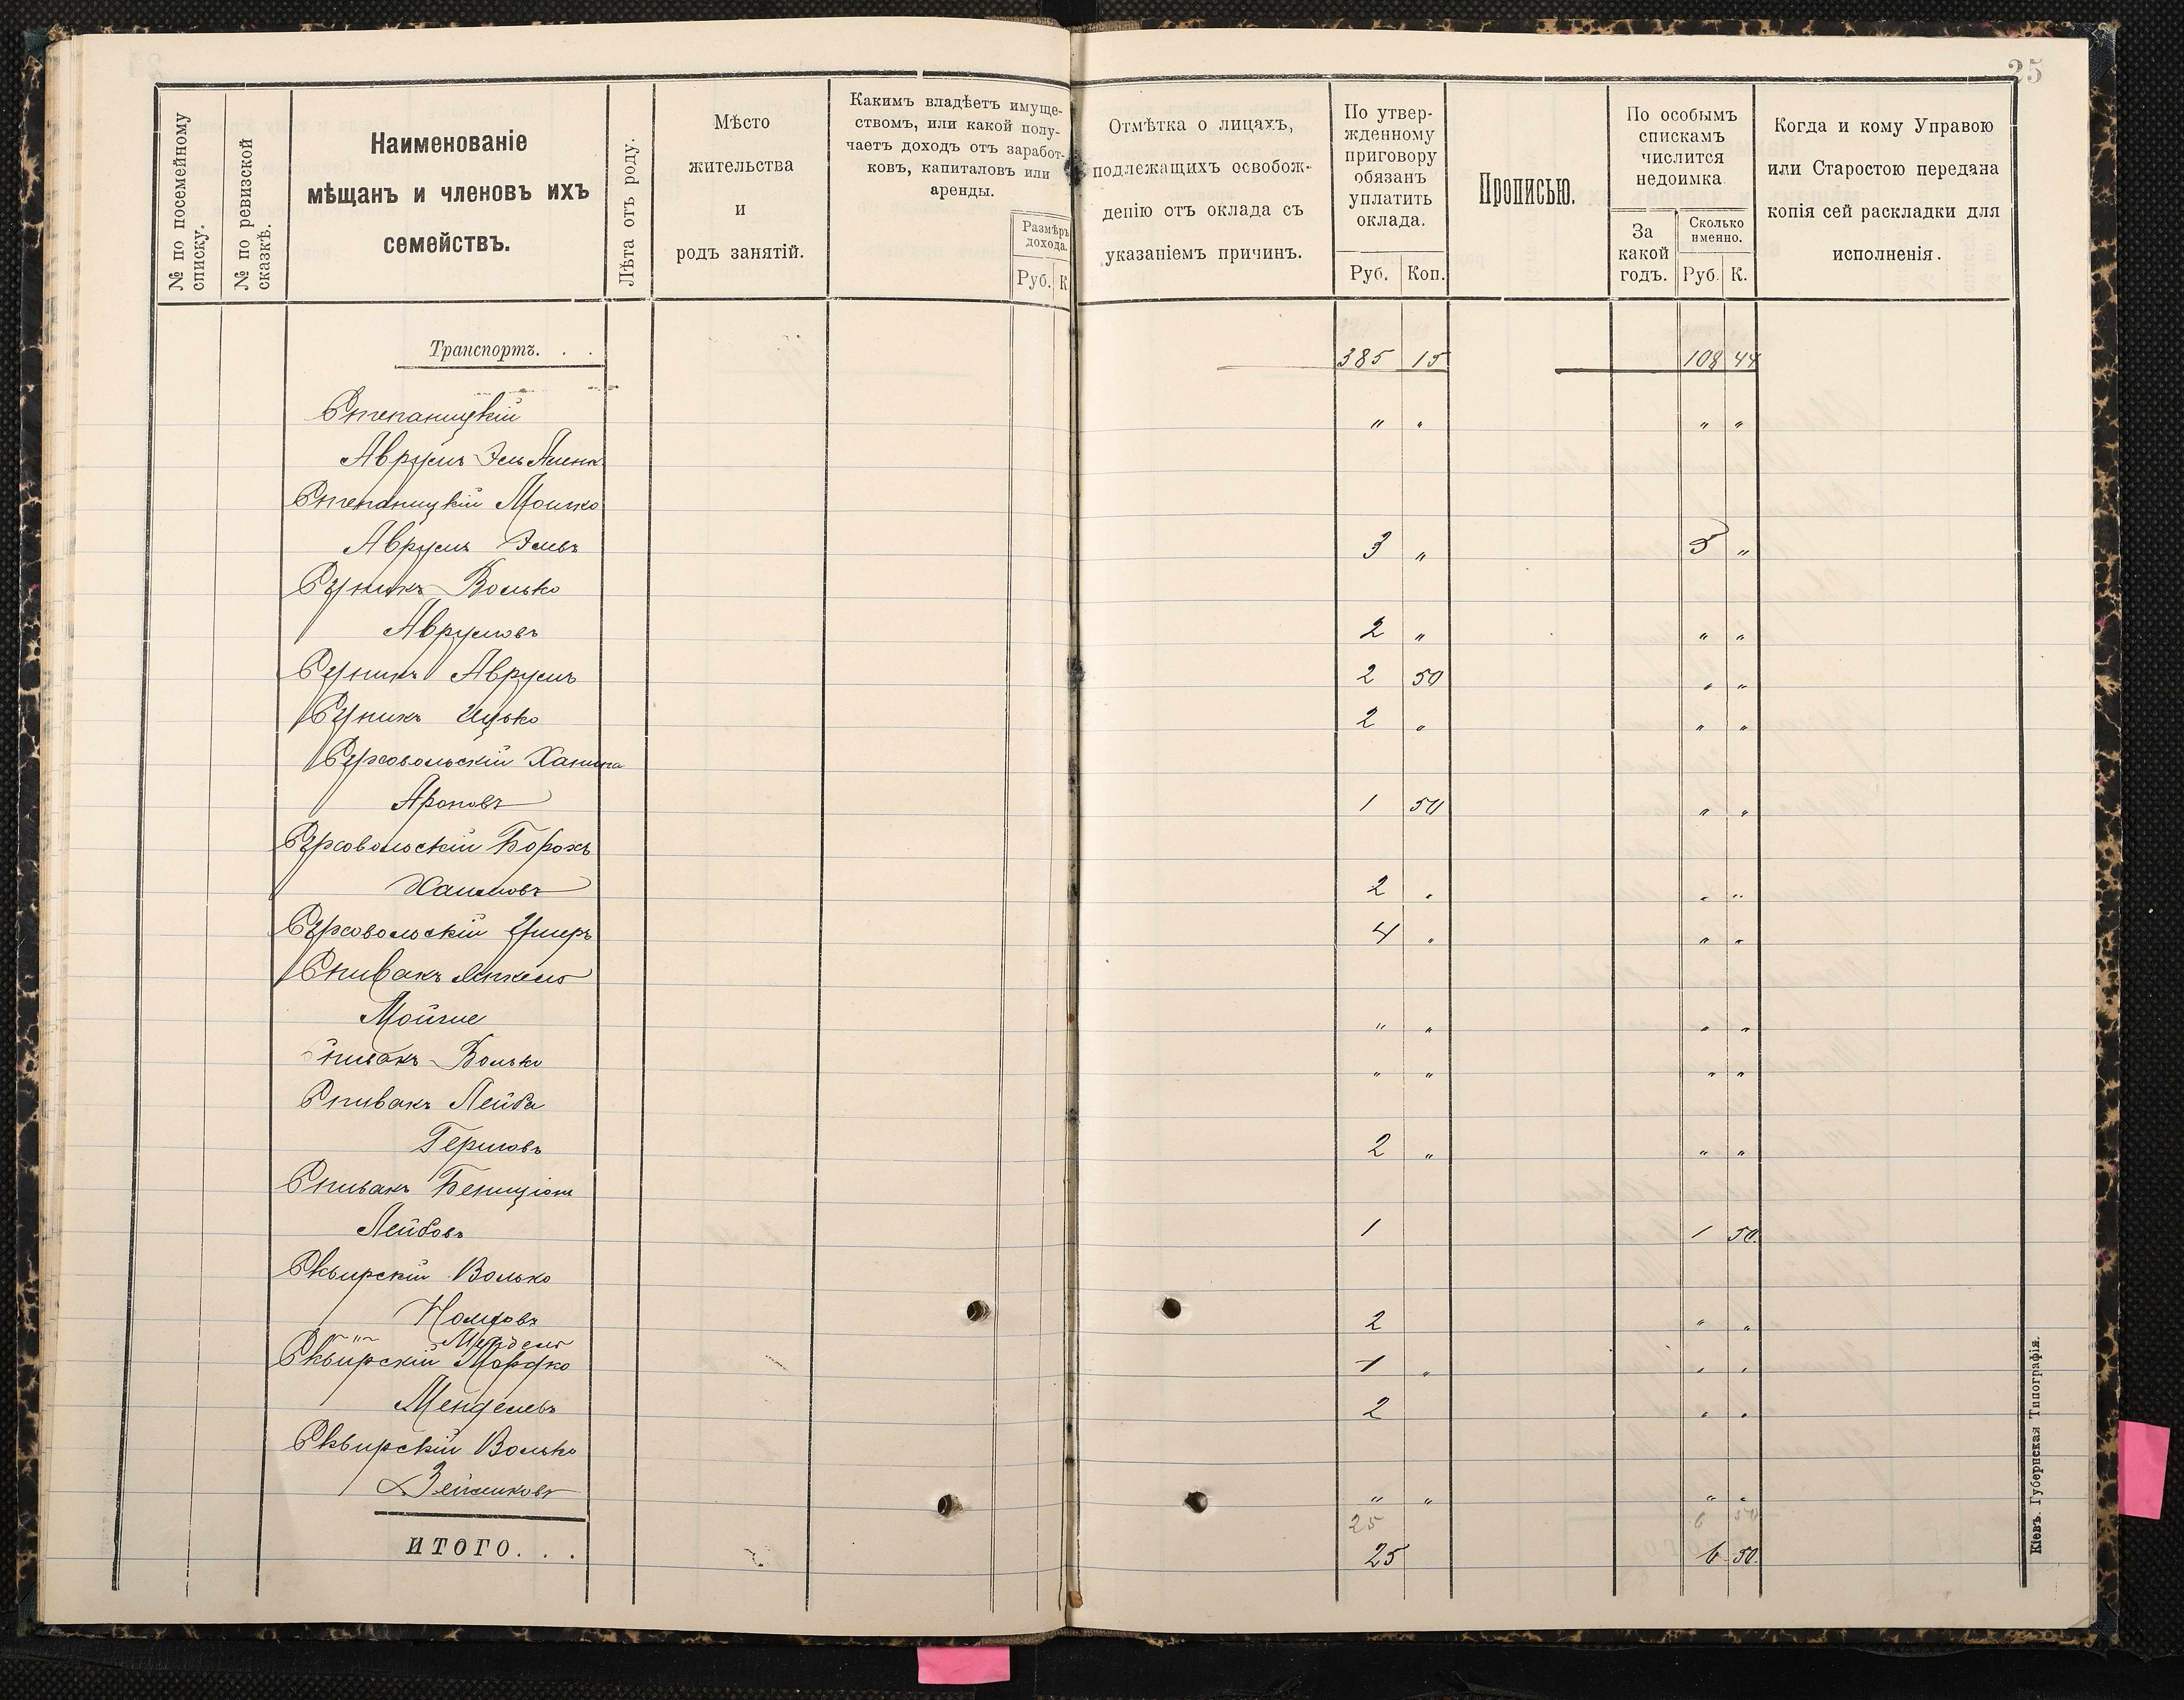 25
№ по посемейному списку.
№ по ревизской сказкѣ.
Наименованіе
мѣщанъ и членовъ ихъ
семействъ.
Лѣта отъ роду.
Мѣсто
жительства
и
родъ занятій.
Какимъ владѣетъ имуще-
ствомъ, или какой полу-
чаетъ доходъ отъ заработ-
ковъ, капиталовъ или
аренды.
Размѣръ
дохода.
Руб. К
Отмѣтка о лицахъ,
подлежащихъ освобож-
денію отъ оклада съ
указаніемъ причинъ.
По утвер-
жденному
приговору
обязанъ
уплатить
оклада.
Руб. Коп.
Прописью.
По особымъ
спискамъ
числится
недоимка
За
какой
годъ.
Сколько
именно.
Руб. К.
Когда и кому Управою
или Старостою передана
копія сей раскладки для
исполненія.
Транспортъ. . . 385 15 108 44
Степаницкій " " " "
Аврумъ Эль
Степаницкій Мошко
Аврумъ Эльв 3 " 5 "
Сутникъ Волько
Аврумовъ 2 " " "
Сутникъ Аврумъ 2 50 " "
Сутникъ Ицько 2 " " "
Суховольскій Ханина
Ароновъ 1 50 " "
Суховольскій Борохъ
Хаимовъ 2 " " "
Суховольскій Ушеръ 4 " " "
Спивакъ Янкель
Мойше " " " "
Спивакъ Волько " " " "
Спивакъ Лейба
Гершовъ 2 " " "
Спивакъ Бенціонъ
Лейбовъ 1 1 50
Сквирскій Волько
2 " "
Мендель
Сквирскій Мордко 1 " " "
Менделевъ 2 " "
Сквирскій Волько
" " " "
25 6 50
ИТОГО. . . 25 6 50
Кіевъ. Губернская Типографія.